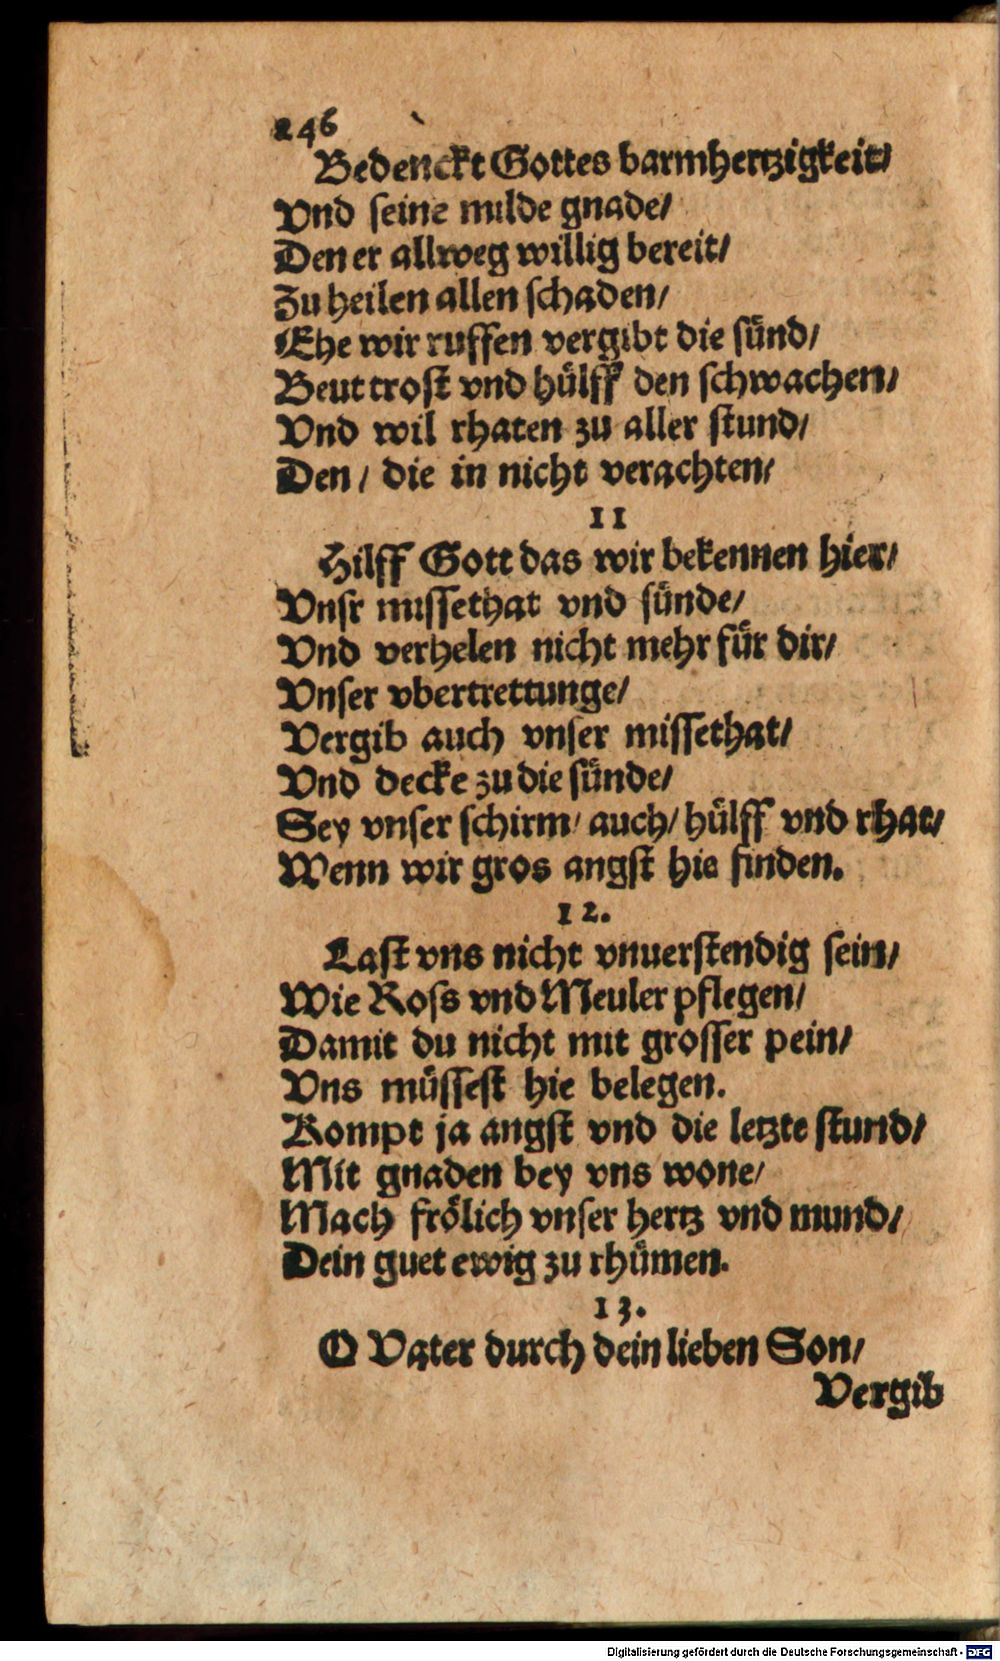 246
Bedenckt Gottes barmhertzigkeit/
Vnd seine milde gnade/
Den er allweg willig bereit/
Zu heilen allen schaden/
Ehe wir ruffen vergibt die sünd/
Beut trost vnd hülff den schwachen/
Vnd wil rhaten zu aller stund/
Den/ die in nicht verachten/
11
Hilff Gott das wir bekennen hier/
Vnsr missethat vnd sünde/
Vnd verhelen nicht mehr für dir/
Vnser vbertrettunge/
Vergib auch vnser missethat/
Vnd decke zu die sünde/
Sey vnser schirm/ auch/ hülff vnd rhat/
Wenn wir gros angst hie finden.
12.
Last vns nicht vnuerstendig sein/
Wie Ross vnd Meuler pflegen/
Damit du nicht mit grosser pein/
Vns müssest hie belegen.
Kompt ja angst vnd die letzte stund/
Mit gnaden bey vns wone/
Mach frölich vnser hertz vnd mund/
Dein guet ewig zu rhümen.
13.
O Vater durch dein lieben Son/
Vergib
Digitalisierung gefördert durch die Deutsche Forschungsgemeinschaft - DFG